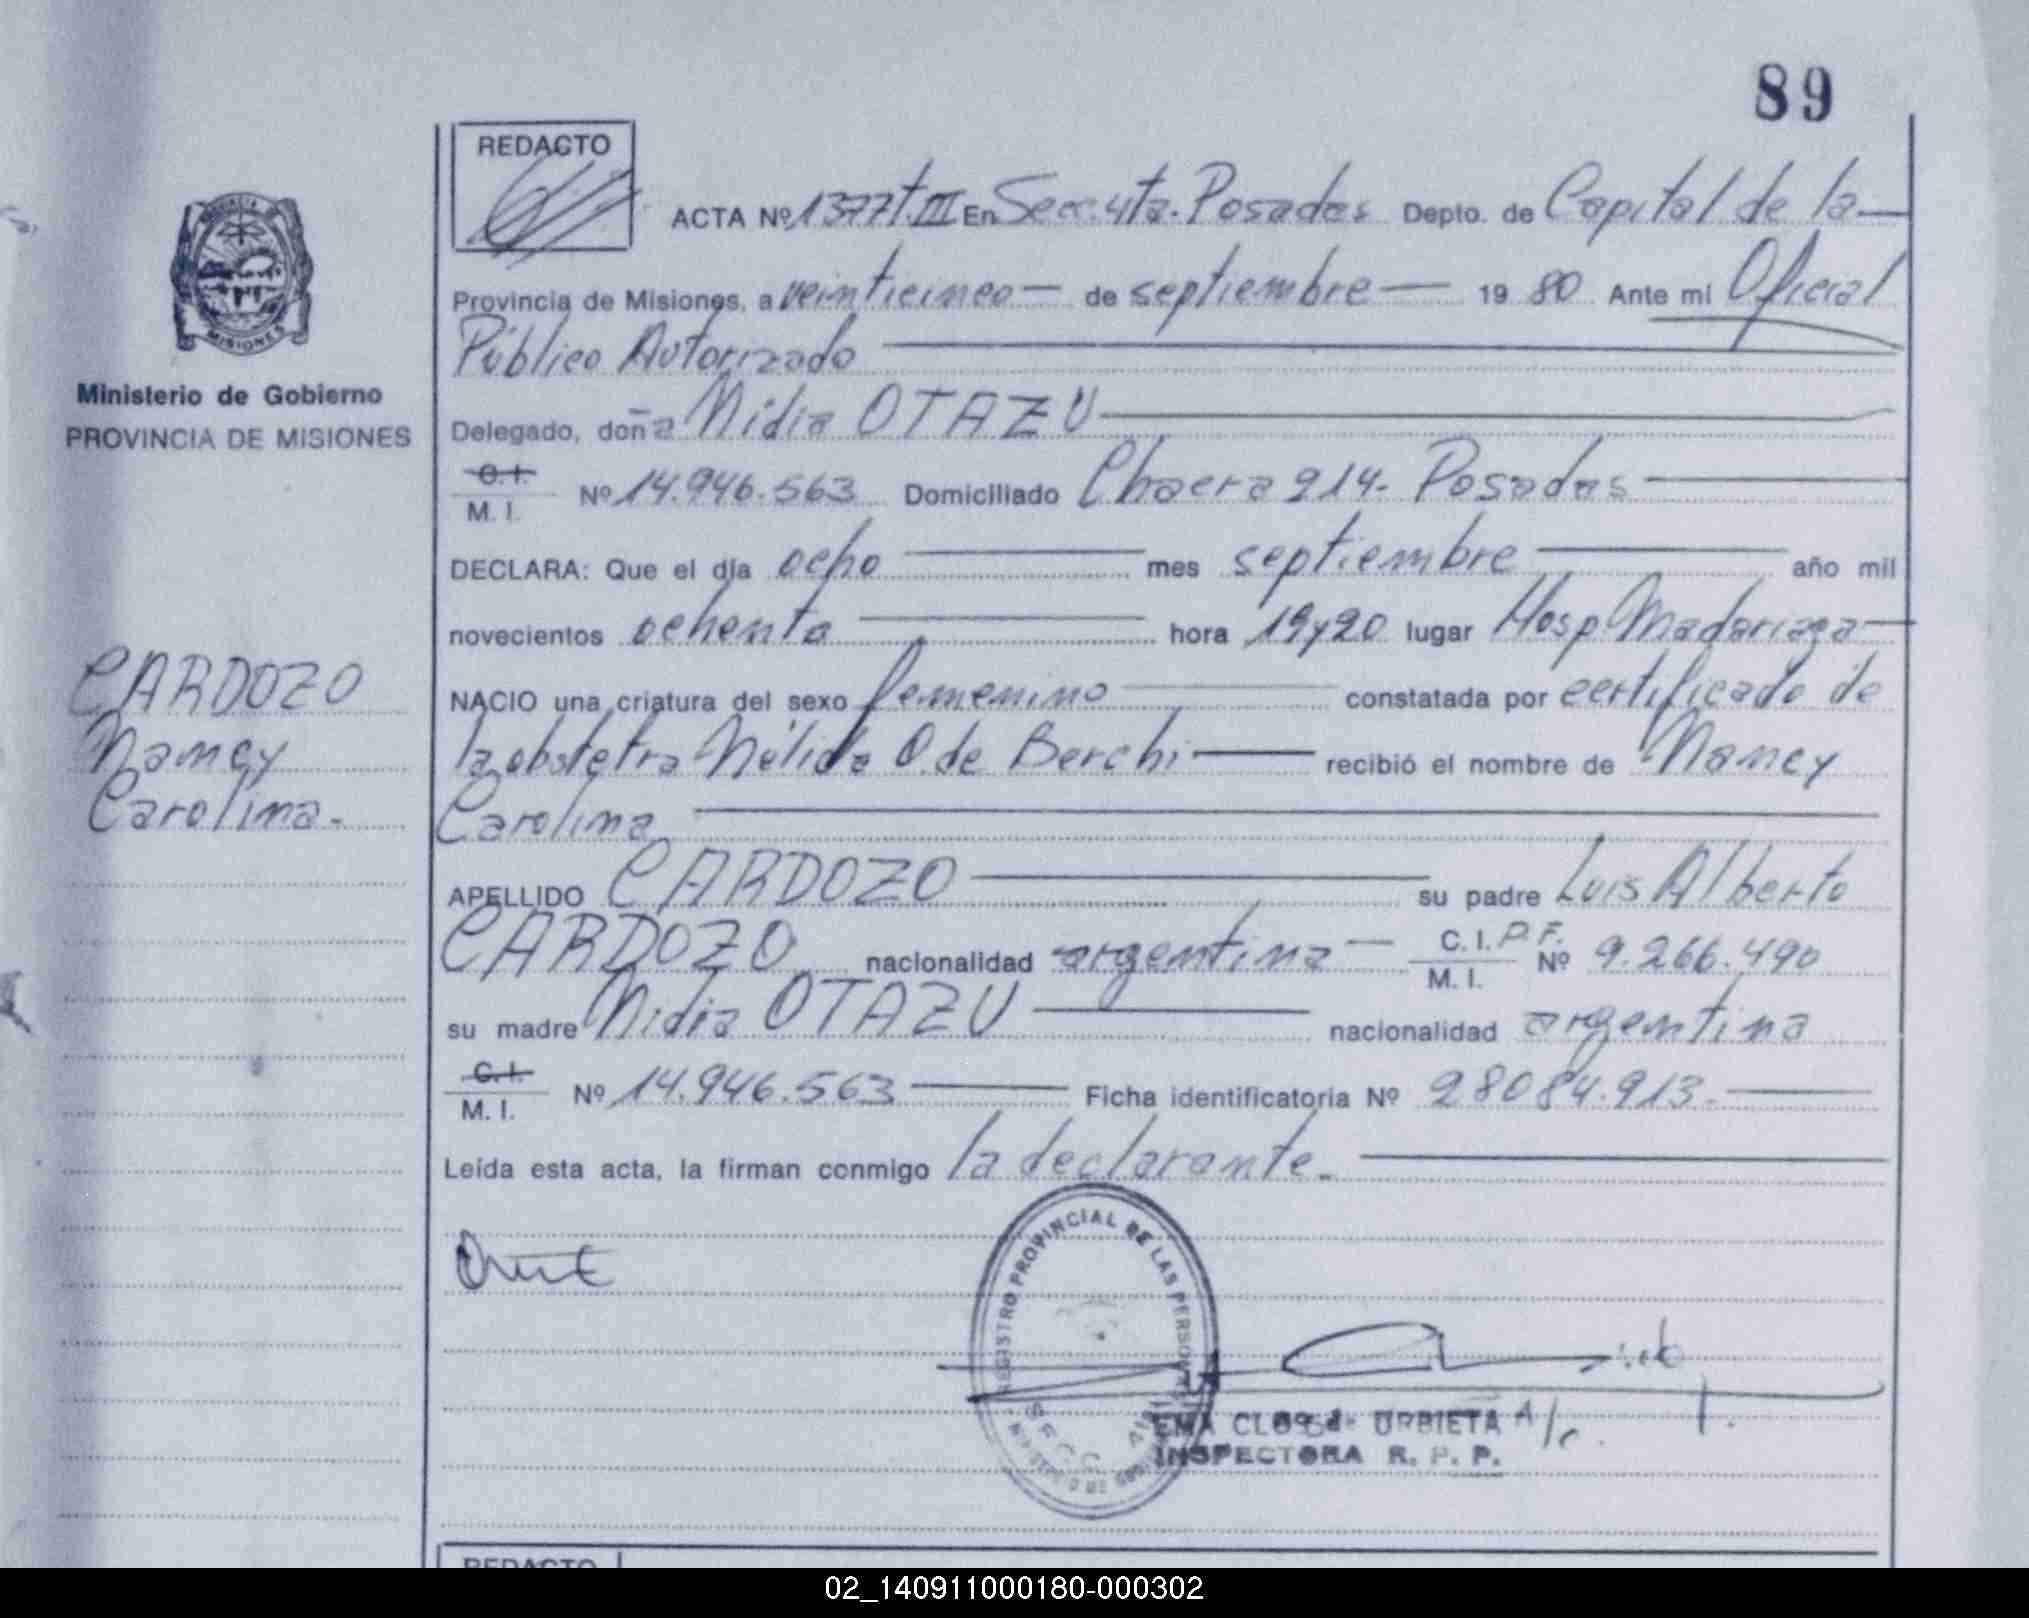 89
REDACTO
ACTA Nº 1377 t.III En Secc. 4ta. Posadas Depto. de Capital de la
Provincia de Misiones, a veinticinco de septiembre 19 80 Ante mí Oficial
Público Autorizado
Delegado, doña Nidia OTAZU
C.I. M.I. Nº 14.946.563 Domiciliado Chacra 214. Posadas
DECLARA: Que el día ocho mes septiembre año mil
novecientos ochenta hora 19y20 lugar Hosp. Madariaga
NACIO una criatura del sexo femenino constatada por certificado de
la obstetra Nélida O. de Berchi recibió el nombre de Nancy
Carolina
APELLIDO CARDOZO su padre Luis Alberto
CARDOZO nacionalidad argentina C.I. P.F. M.I. Nº 9.266.490
su madre Nidia OTAZU nacionalidad argentina
C.I. M.I. Nº 14.946.563 Ficha identificatoria Nº 28084.913.
Leída esta acta, la firman conmigo la declarante.
REGISTRO PROVINCIAL DE LAS PERSONAS
URBIETA A/c.
INSPECTORA R. P. P.
MISIONES
Ministerio de Gobierno
PROVINCIA DE MISIONES
CARDOZO
Nancy
Carolina.
REDACTO
02_140911000180-000302